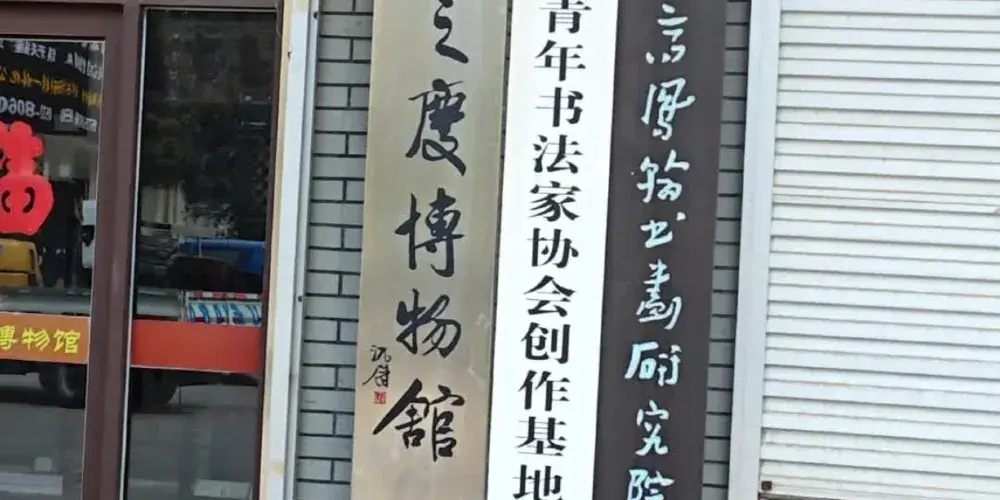 之度博物館
青年书法家协会创作基地
高鳳翰书畫研究院
博物馆